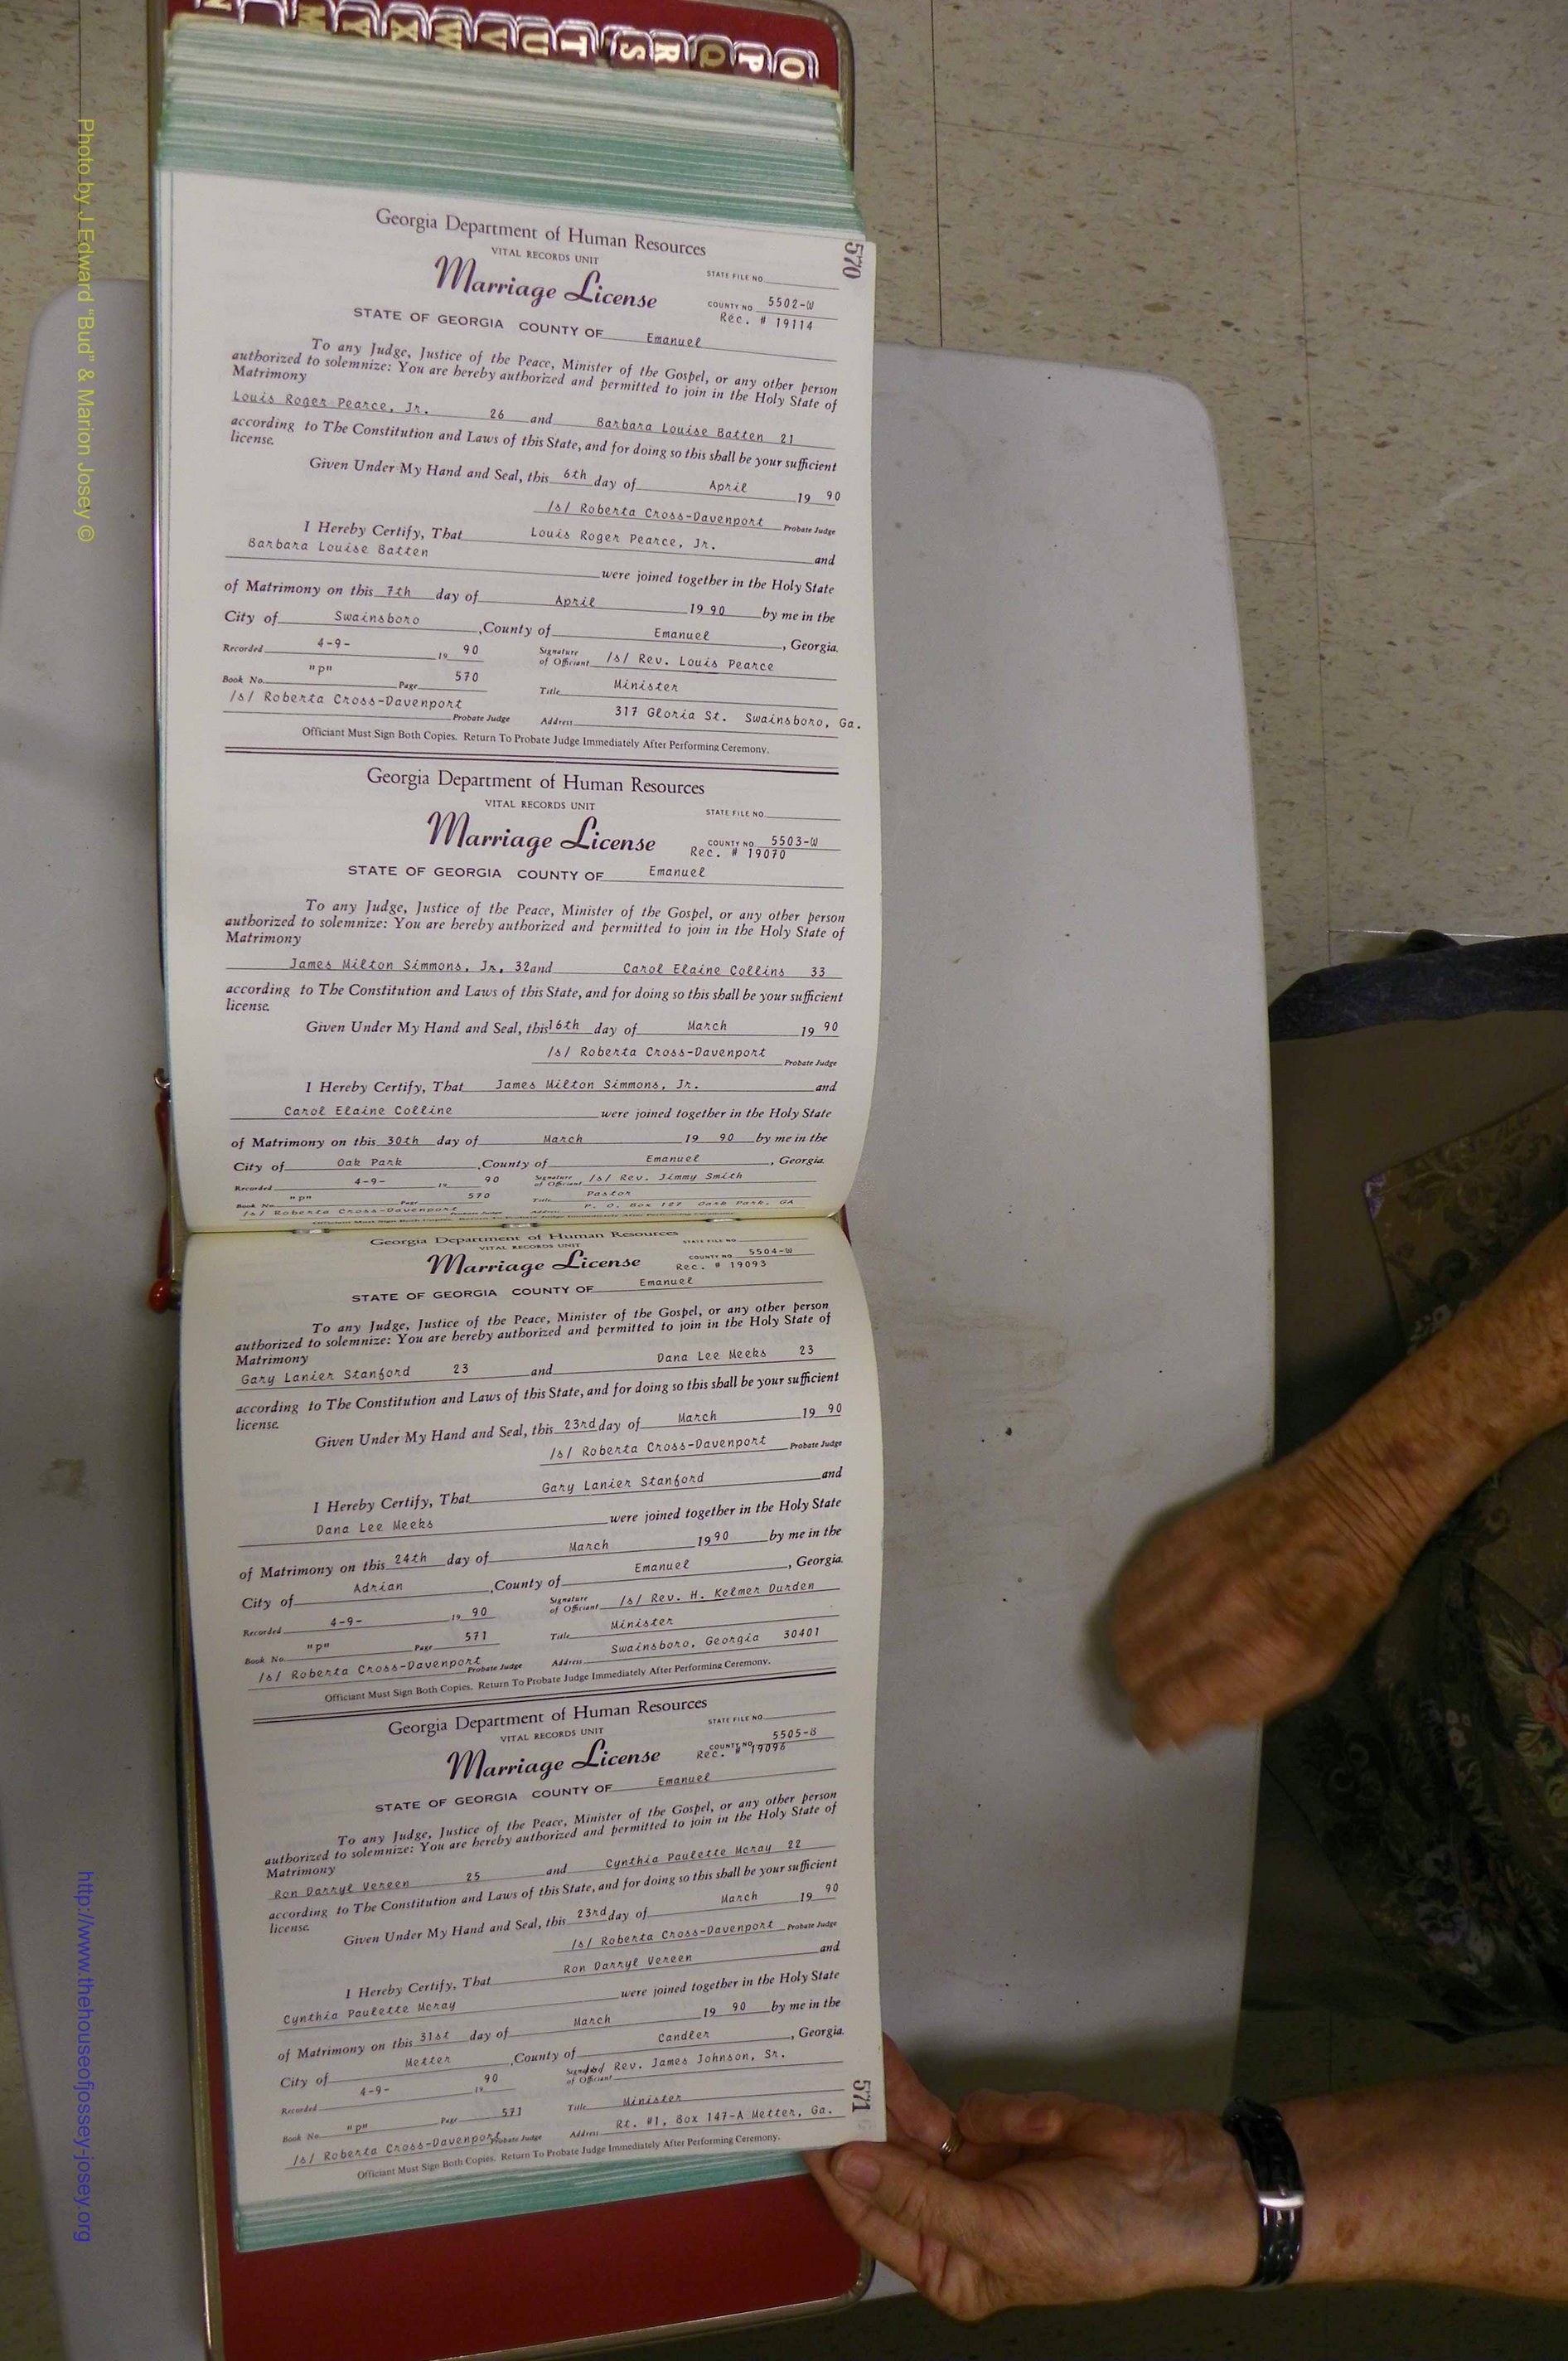 N M Y X W V U T S R Q P O
570
Georgia Department of Human Resources
VITAL RECORDS UNIT
STATE FILE NO.
Marriage License
COUNTY NO. 5502-W
Rec. # 19114
STATE OF GEORGIA COUNTY OF Emanuel
To any Judge, Justice of the Peace, Minister of the Gospel, or any other person
authorized to solemnize: You are hereby authorized and permitted to join in the Holy State of
Matrimony
Louis Roger Pearce, Jr. 26 and Barbara Louise Batten 21
according to The Constitution and Laws of this State, and for doing so this shall be your sufficient
license.
Given Under My Hand and Seal, this 6th day of April 19 90
/s/ Roberta Cross-Davenport Probate Judge
I Hereby Certify, That Louis Roger Pearce, Jr. and
Barbara Louise Batten were joined together in the Holy State
of Matrimony on this 7th day of April 19 90 by me in the
City of Swainsboro, County of Emanuel, Georgia.
Recorded 4-9- 19 90 Signature of Officiant /s/ Rev. Louis Pearce
Book No. "P" Page 570 Title Minister
/s/ Roberta Cross-Davenport Probate Judge Address 317 Gloria St. Swainsboro, Ga.
Officiant Must Sign Both Copies. Return To Probate Judge Immediately After Performing Ceremony.
Georgia Department of Human Resources
VITAL RECORDS UNIT
STATE FILE NO.
Marriage License
COUNTY NO. 5503-W
Rec. # 19070
STATE OF GEORGIA COUNTY OF Emanuel
To any Judge, Justice of the Peace, Minister of the Gospel, or any other person
authorized to solemnize: You are hereby authorized and permitted to join in the Holy State of
Matrimony
James Milton Simmons, Jr, 32 and Carol Elaine Collins 33
according to The Constitution and Laws of this State, and for doing so this shall be your sufficient
license.
Given Under My Hand and Seal, this 16th day of March 19 90
/s/ Roberta Cross-Davenport Probate Judge
I Hereby Certify, That James Milton Simmons, Jr. and
Carol Elaine Colline were joined together in the Holy State
of Matrimony on this 30th day of March 19 90 by me in the
City of Oak Park, County of Emanuel, Georgia.
Recorded 4-9- 19 90 Signature of Officiant /s/ Rev. Jimmy Smith
Book No. "P" Page 570 Title Pastor
/s/ Roberta Cross-Davenport Probate Judge Address P. O. Box 127 Oark Park, GA
Officiant Must Sign Both Copies. Return To Probate Judge Immediately After Performing Ceremony.
Georgia Department of Human Resources
VITAL RECORDS UNIT
STATE FILE NO.
Marriage License
COUNTY NO. 5504-W
Rec. # 19093
STATE OF GEORGIA COUNTY OF Emanuel
To any Judge, Justice of the Peace, Minister of the Gospel, or any other person
authorized to solemnize: You are hereby authorized and permitted to join in the Holy State of
Matrimony
Gary Lanier Stanford 23 and Dana Lee Meeks 23
according to The Constitution and Laws of this State, and for doing so this shall be your sufficient
license.
Given Under My Hand and Seal, this 23rd day of March 19 90
/s/ Roberta Cross-Davenport Probate Judge
I Hereby Certify, That Gary Lanier Stanford and
Dana Lee Meeks were joined together in the Holy State
of Matrimony on this 24th day of March 19 90 by me in the
City of Adrian, County of Emanuel, Georgia.
Recorded 4-9- 19 90 Signature of Officiant /s/ Rev. H. Kelmer Durden
Book No. "P" Page 571 Title Minister
/s/ Roberta Cross-Davenport Probate Judge Address Swainsboro, Georgia 30401
Officiant Must Sign Both Copies. Return To Probate Judge Immediately After Performing Ceremony.
Georgia Department of Human Resources
VITAL RECORDS UNIT
STATE FILE NO.
Marriage License
COUNTY NO. 5505-B
Rec. # 19096
STATE OF GEORGIA COUNTY OF Emanuel
To any Judge, Justice of the Peace, Minister of the Gospel, or any other person
authorized to solemnize: You are hereby authorized and permitted to join in the Holy State of
Matrimony
Ron Darryl Vereen 25 and Cynthia Paulette Mcray 22
according to The Constitution and Laws of this State, and for doing so this shall be your sufficient
license.
Given Under My Hand and Seal, this 23rd day of March 19 90
/s/ Roberta Cross-Davenport Probate Judge
I Hereby Certify, That Ron Darryl Vereen and
Cynthia Paulette Mcray were joined together in the Holy State
of Matrimony on this 31st day of March 19 90 by me in the
City of Metter, County of Candler, Georgia.
Recorded 4-9- 19 90 Signature of Officiant /s/ Rev. James Johnson, Sr.
Book No. "P" Page 571 Title Minister
/s/ Roberta Cross-Davenport Probate Judge Address Rt. #1, Box 147-A Metter, Ga.
Officiant Must Sign Both Copies. Return To Probate Judge Immediately After Performing Ceremony.
571
Photo by J Edward "Bud" & Marion Josey ©
http://www.thehouseofjossey-josey.org